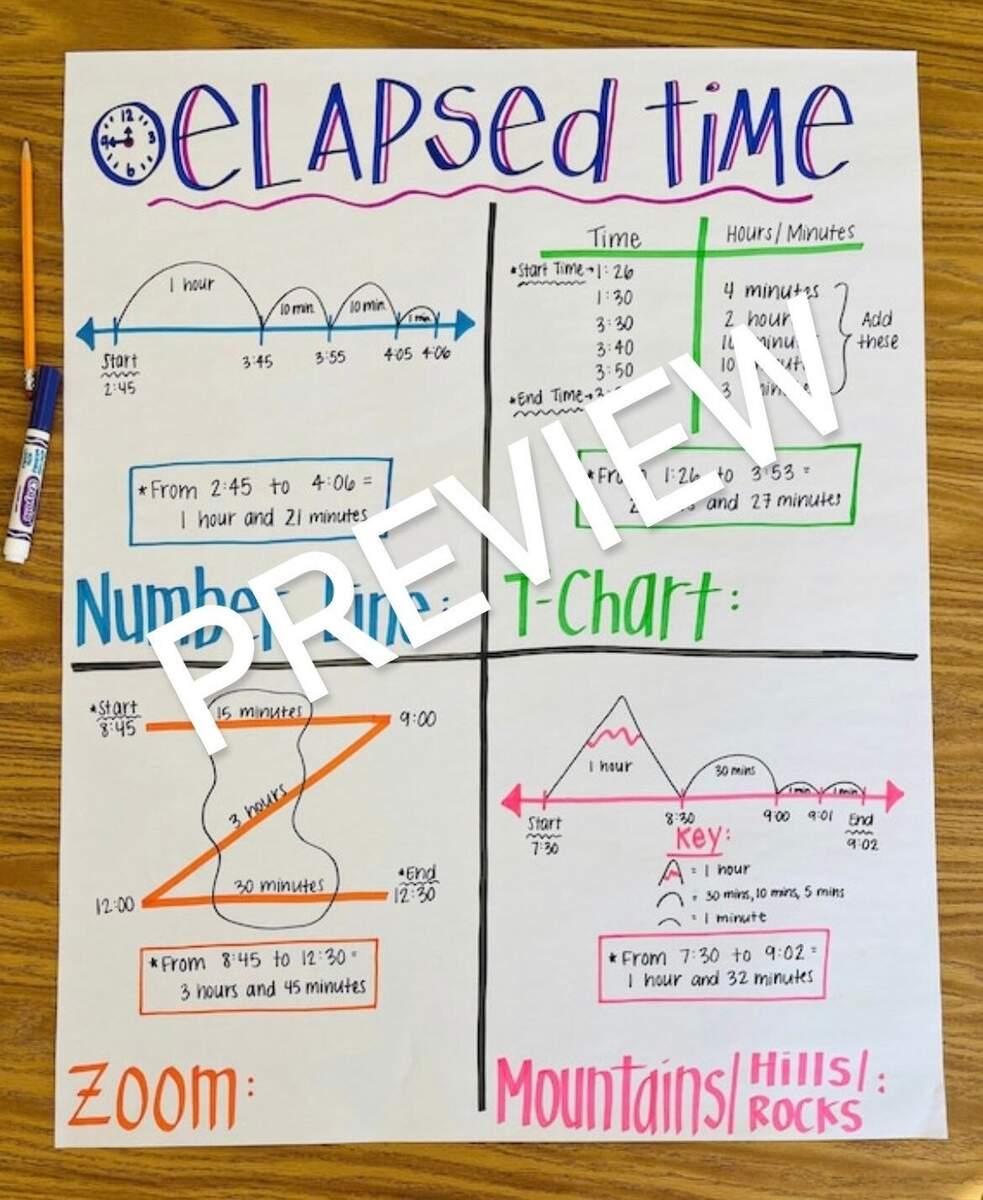 12
9 3
6
eLAPSed TiMe
1 hour
10 min
10 min
1 min
Start
2:45
3:45
3:55
4:05
4:06
*From 2:45 to 4:06 =
1 hour and 21 minutes
Number Line:
Time Hours/Minutes
*Start Time→1:26
1:30 4 minutes
3:30 2 hours
3:40 10 minutes
3:50 10 minutes
*End Time→3: 3
Add
these
*From 1:26 to 3:53 =
2 and 27 minutes
T-Chart:
*Start
8:45
15 minutes
9:00
3 hours
12:00
30 minutes
*End
12:30
*From 8:45 to 12:30 =
3 hours and 45 minutes
Zoom:
1 hour
30 mins
1 min
1 min
Start
7:30
8:30
9:00
9:01
End
9:02
Key:
= 1 hour
= 30 mins, 10 mins, 5 mins
= 1 minute
*From 7:30 to 9:02 =
1 hour and 32 minutes
Mountains/Hills/:
ROCKS
Crayola
PREVIEW